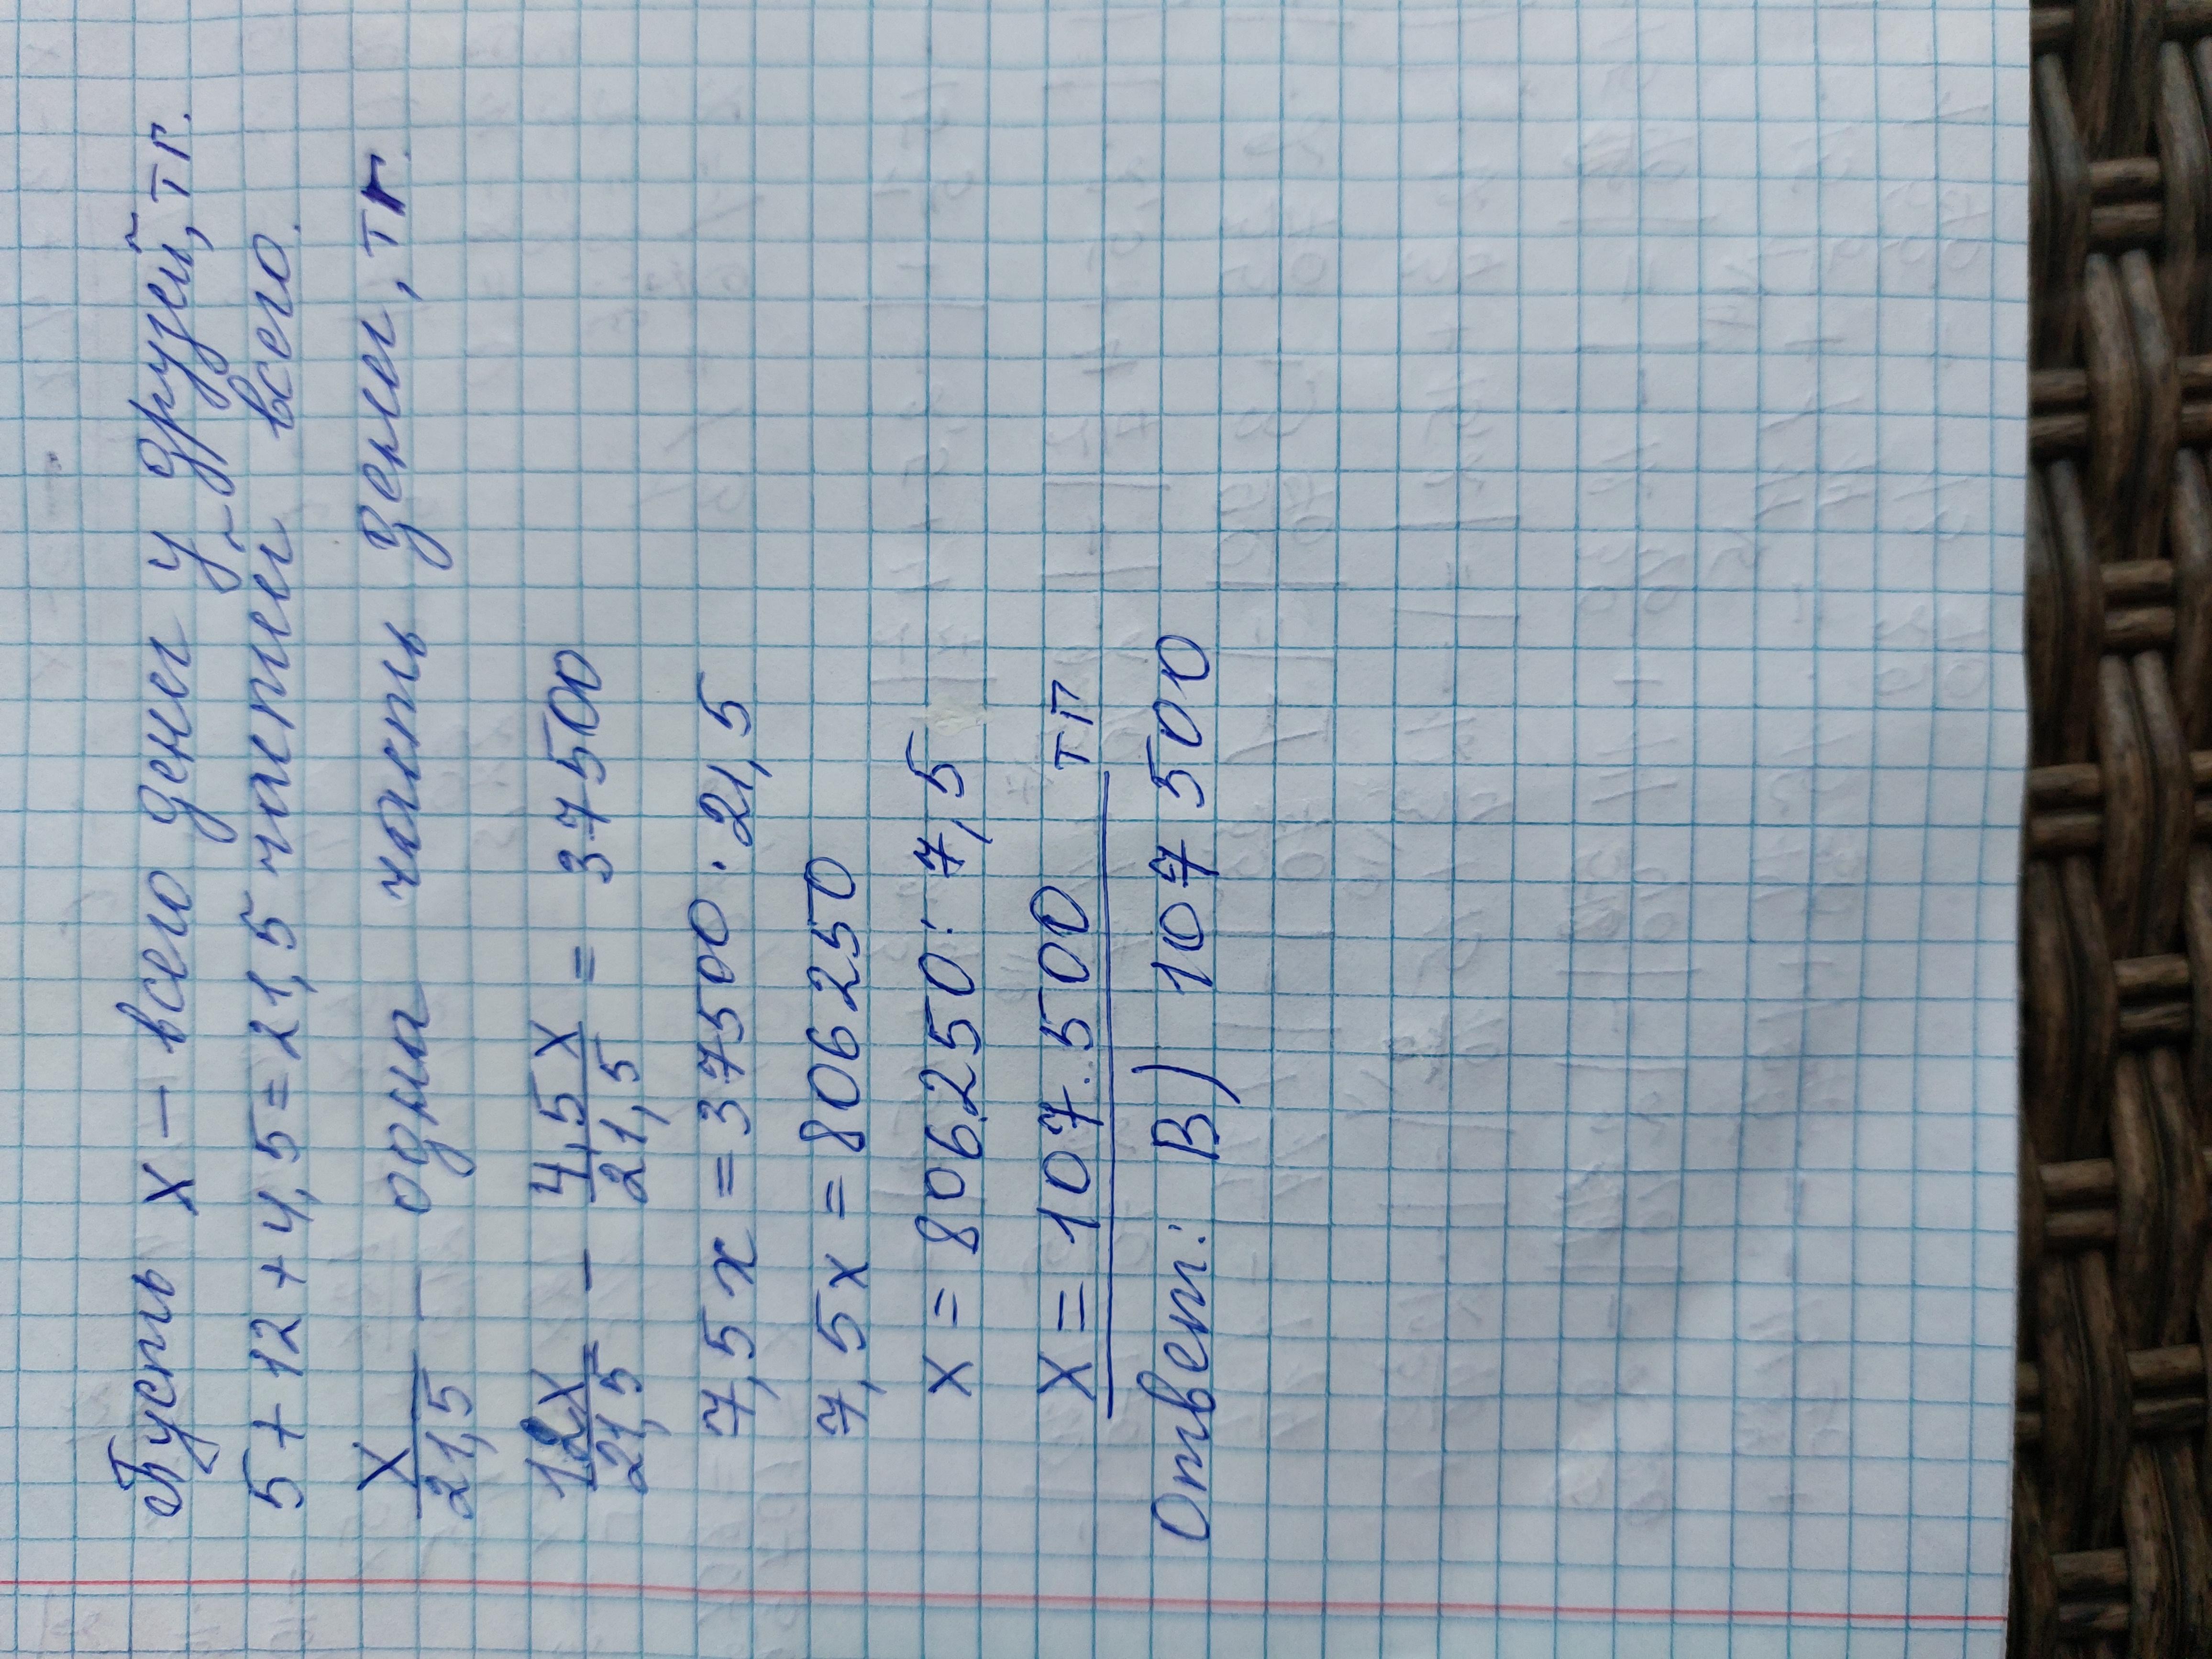 Пусть x – всего денег у друзей, тг.
5+12+4,5=21,5 частей всего.
x/21,5 – одна часть денег, тг.
12x/21,5 – 4,5x/21,5 = 37500
7,5x=37500·21,5
7,5x=806250
x=806250:7,5
x=107.500 тг
Ответ: В) 107 500